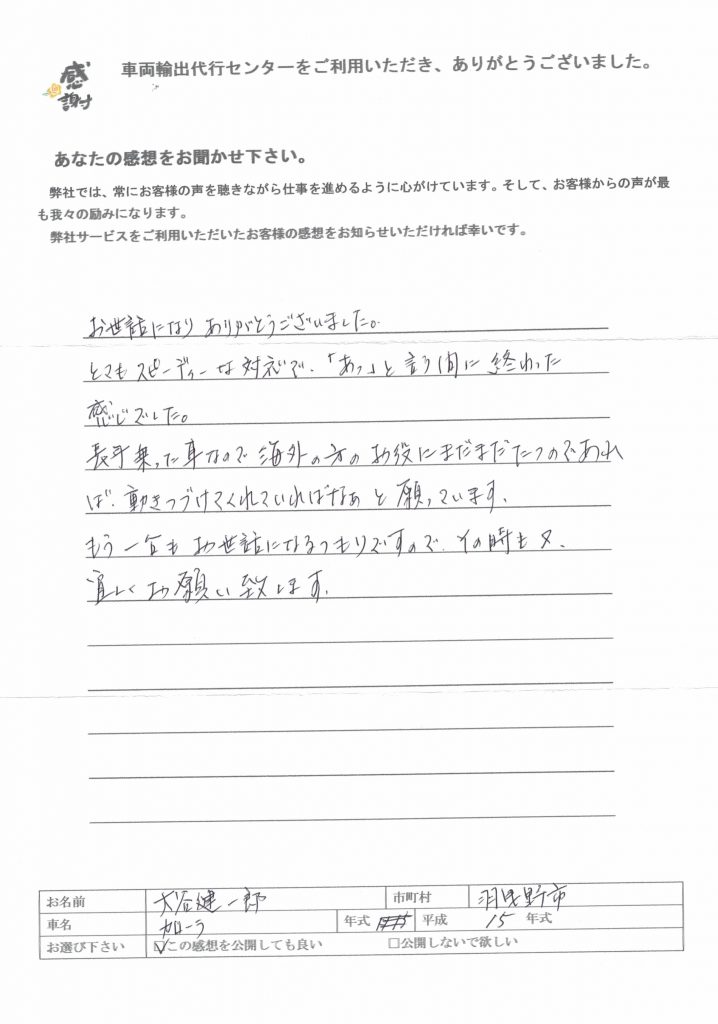 感謝
車両輸出代行センターをご利用いただき、ありがとうございました。
あなたの感想をお聞かせ下さい。
弊社では、常にお客様の声を聴きながら仕事を進めるように心がけています。そして、お客様からの声が最
も我々の励みになります。
弊社サービスをご利用いただいたお客様の感想をお知らせいただければ幸いです。
お世話になり ありがとうございました。
とてもスピーディーな対応で、「あっ」と言う間に終わった
感じでした。
長年乗った車なので海外の方のお役にまだまだたつのであれ
ば、動きつづけてくれていればなぁと願っています。
もう一台もお世話になるつもりですので、その時も又、
宜しくお願い致します。
お名前 大谷健一郎 市町村 羽曳野市
車名 カローラ 年式 平成 15 年式
お選び下さい ☑この感想を公開しても良い ☐公開しないで欲しい